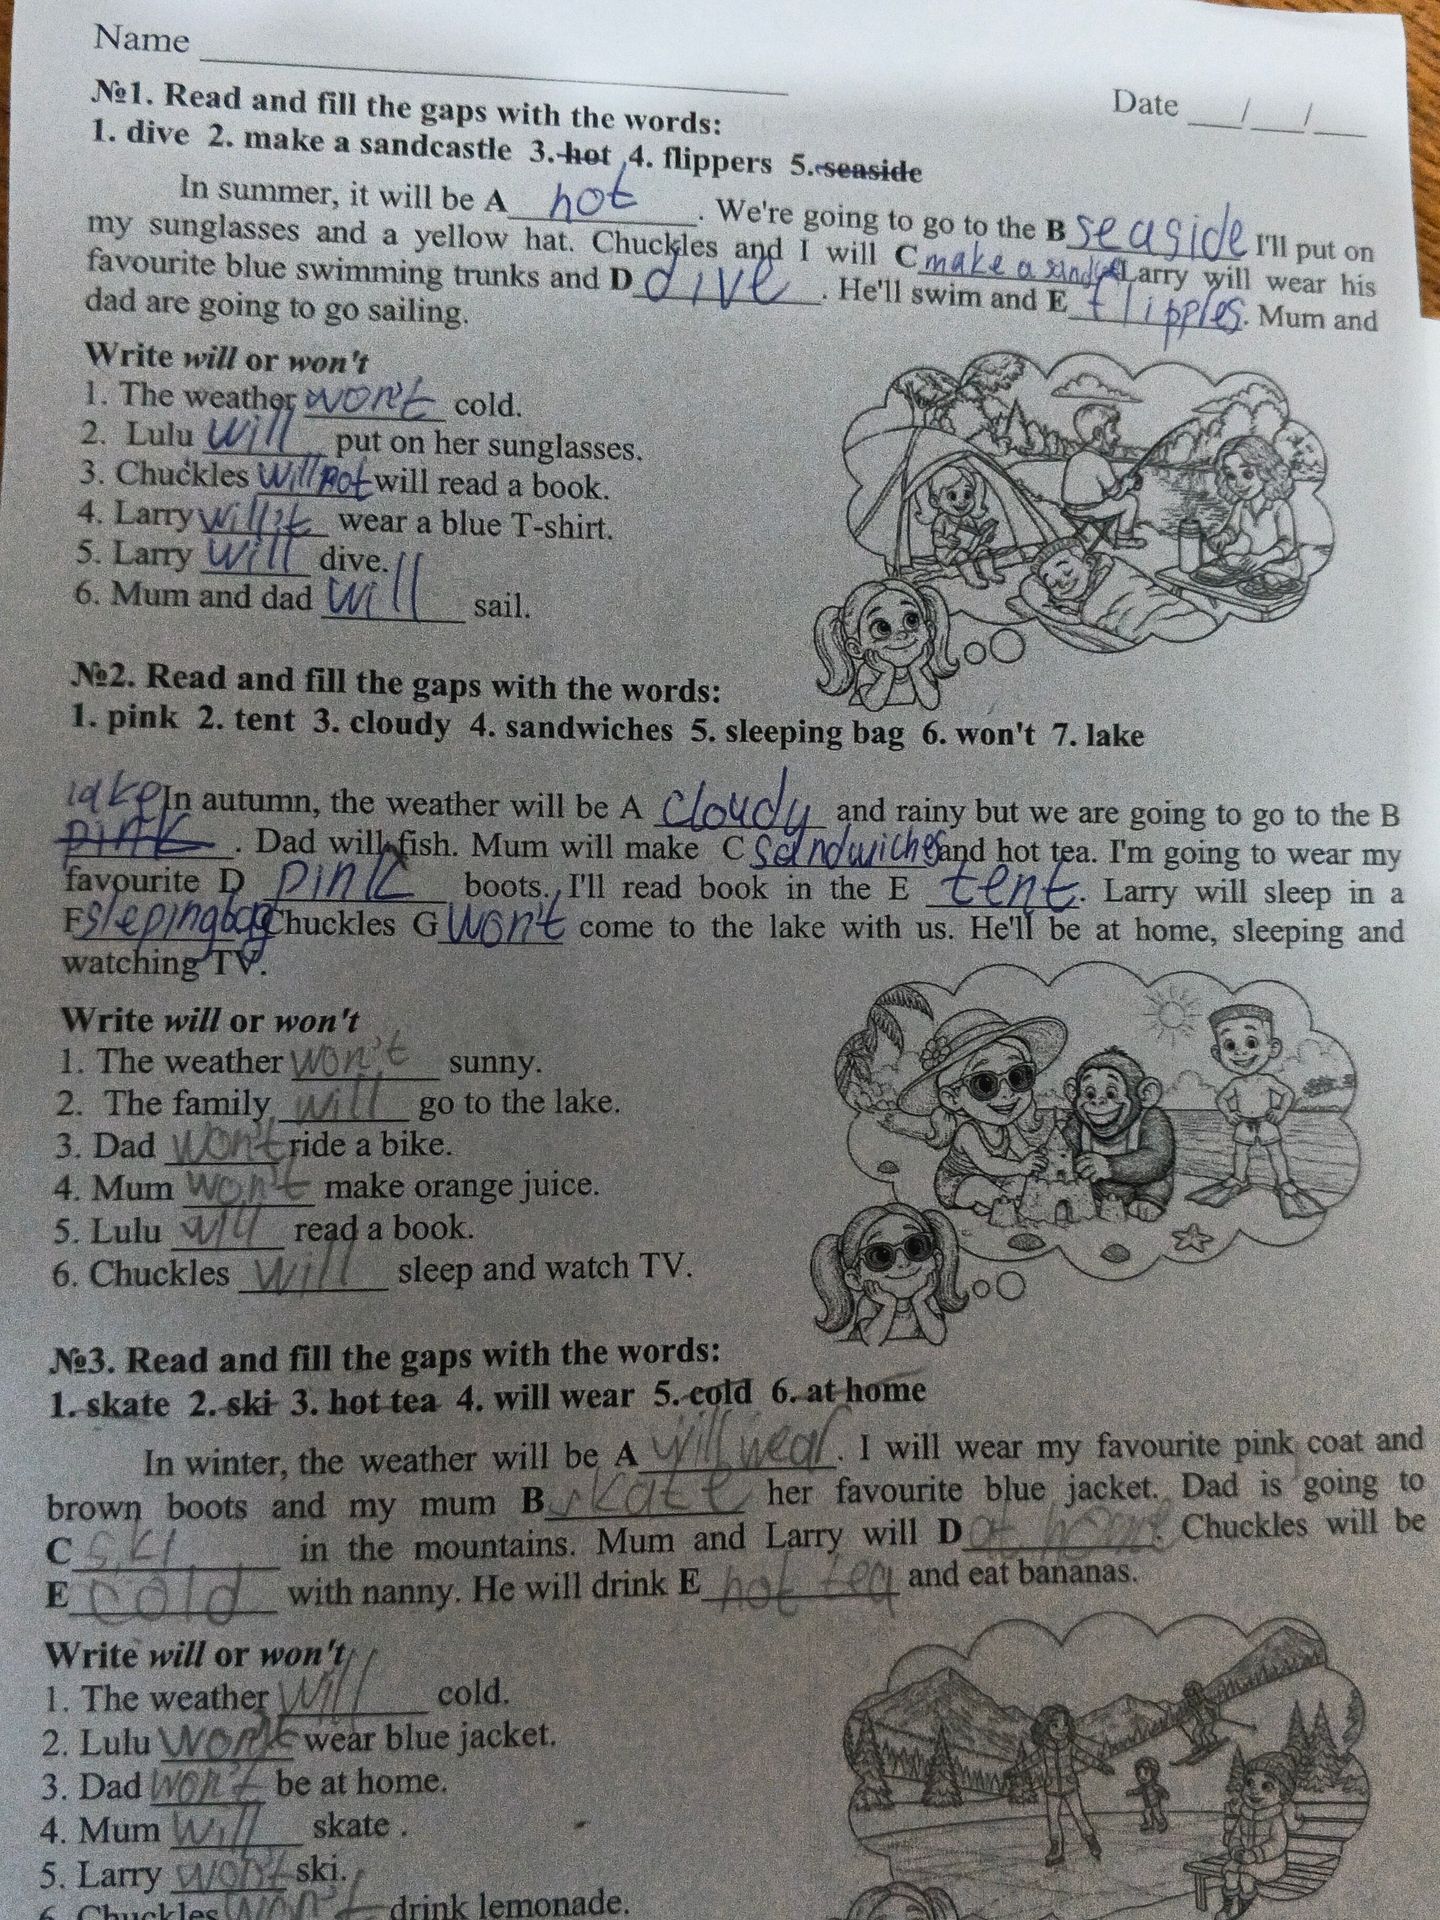 Name ____________
Date ___/___/___
№1. Read and fill the gaps with the words:
1. dive 2. make a sandcastle 3. hot 4. flippers 5. seaside
In summer, it will be A hot . We're going to go to the B seaside I'll put on
my sunglasses and a yellow hat. Chuckles and I will C make a Larry will wear his
favourite blue swimming trunks and D dive . He'll swim and E flipples. Mum and
dad are going to go sailing.
Write will or won't
1. The weather won't cold.
2. Lulu will put on her sunglasses.
3. Chuckles will not will read a book.
4. Larry wear a blue T-shirt.
5. Larry will dive.
6. Mum and dad will sail.
№2. Read and fill the gaps with the words:
1. pink 2. tent 3. cloudy 4. sandwiches 5. sleeping bag 6. won't 7. lake
lake In autumn, the weather will be A cloudy and rainy but we are going to go to the B
pink . Dad will fish. Mum will make C sandwiches and hot tea. I'm going to wear my
favourite D pink boots. I'll read book in the E tent. Larry will sleep in a
F slepingbag Chuckles G won't come to the lake with us. He'll be at home, sleeping and
watching TV.
Write will or won't
1. The weather won't sunny.
2. The family will go to the lake.
3. Dad won't ride a bike.
4. Mum won't make orange juice.
5. Lulu will read a book.
6. Chuckles will sleep and watch TV.
№3. Read and fill the gaps with the words:
1. skate 2. ski 3. hot tea 4. will wear 5. cold 6. at home
In winter, the weather will be A will wear. I will wear my favourite pink coat and
brown boots and my mum B skate her favourite blue jacket. Dad is going to
C ski in the mountains. Mum and Larry will D at home. Chuckles will be
E cold with nanny. He will drink E hot tea and eat bananas.
Write will or won't
1. The weather will cold.
2. Lulu won't wear blue jacket.
3. Dad won't be at home.
4. Mum will skate .
5. Larry won't ski.
6. Chuckles won't drink lemonade.